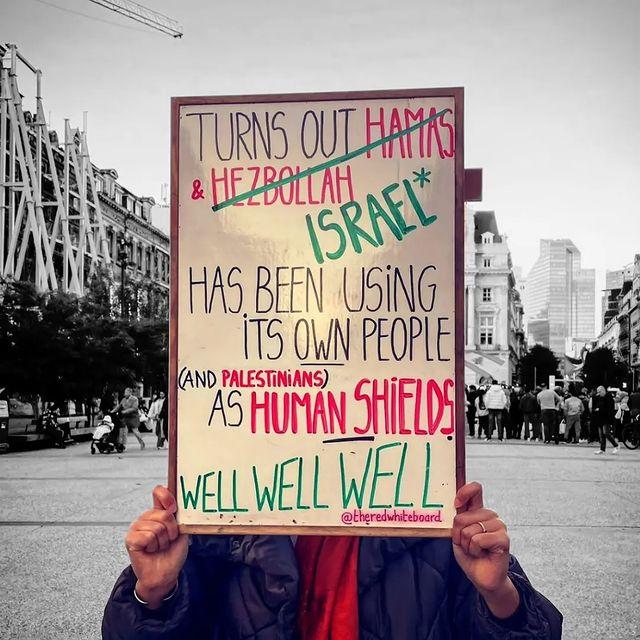 TURNS OUT HAMAS
& HEZBOLLAH
ISRAEL*
HAS BEEN USiNG
iTS OWN PEOPLE
(AND PALESTiNiANS)
AS HUMAN SHiELDS
WELL WELL WELL
@theredwhiteboard